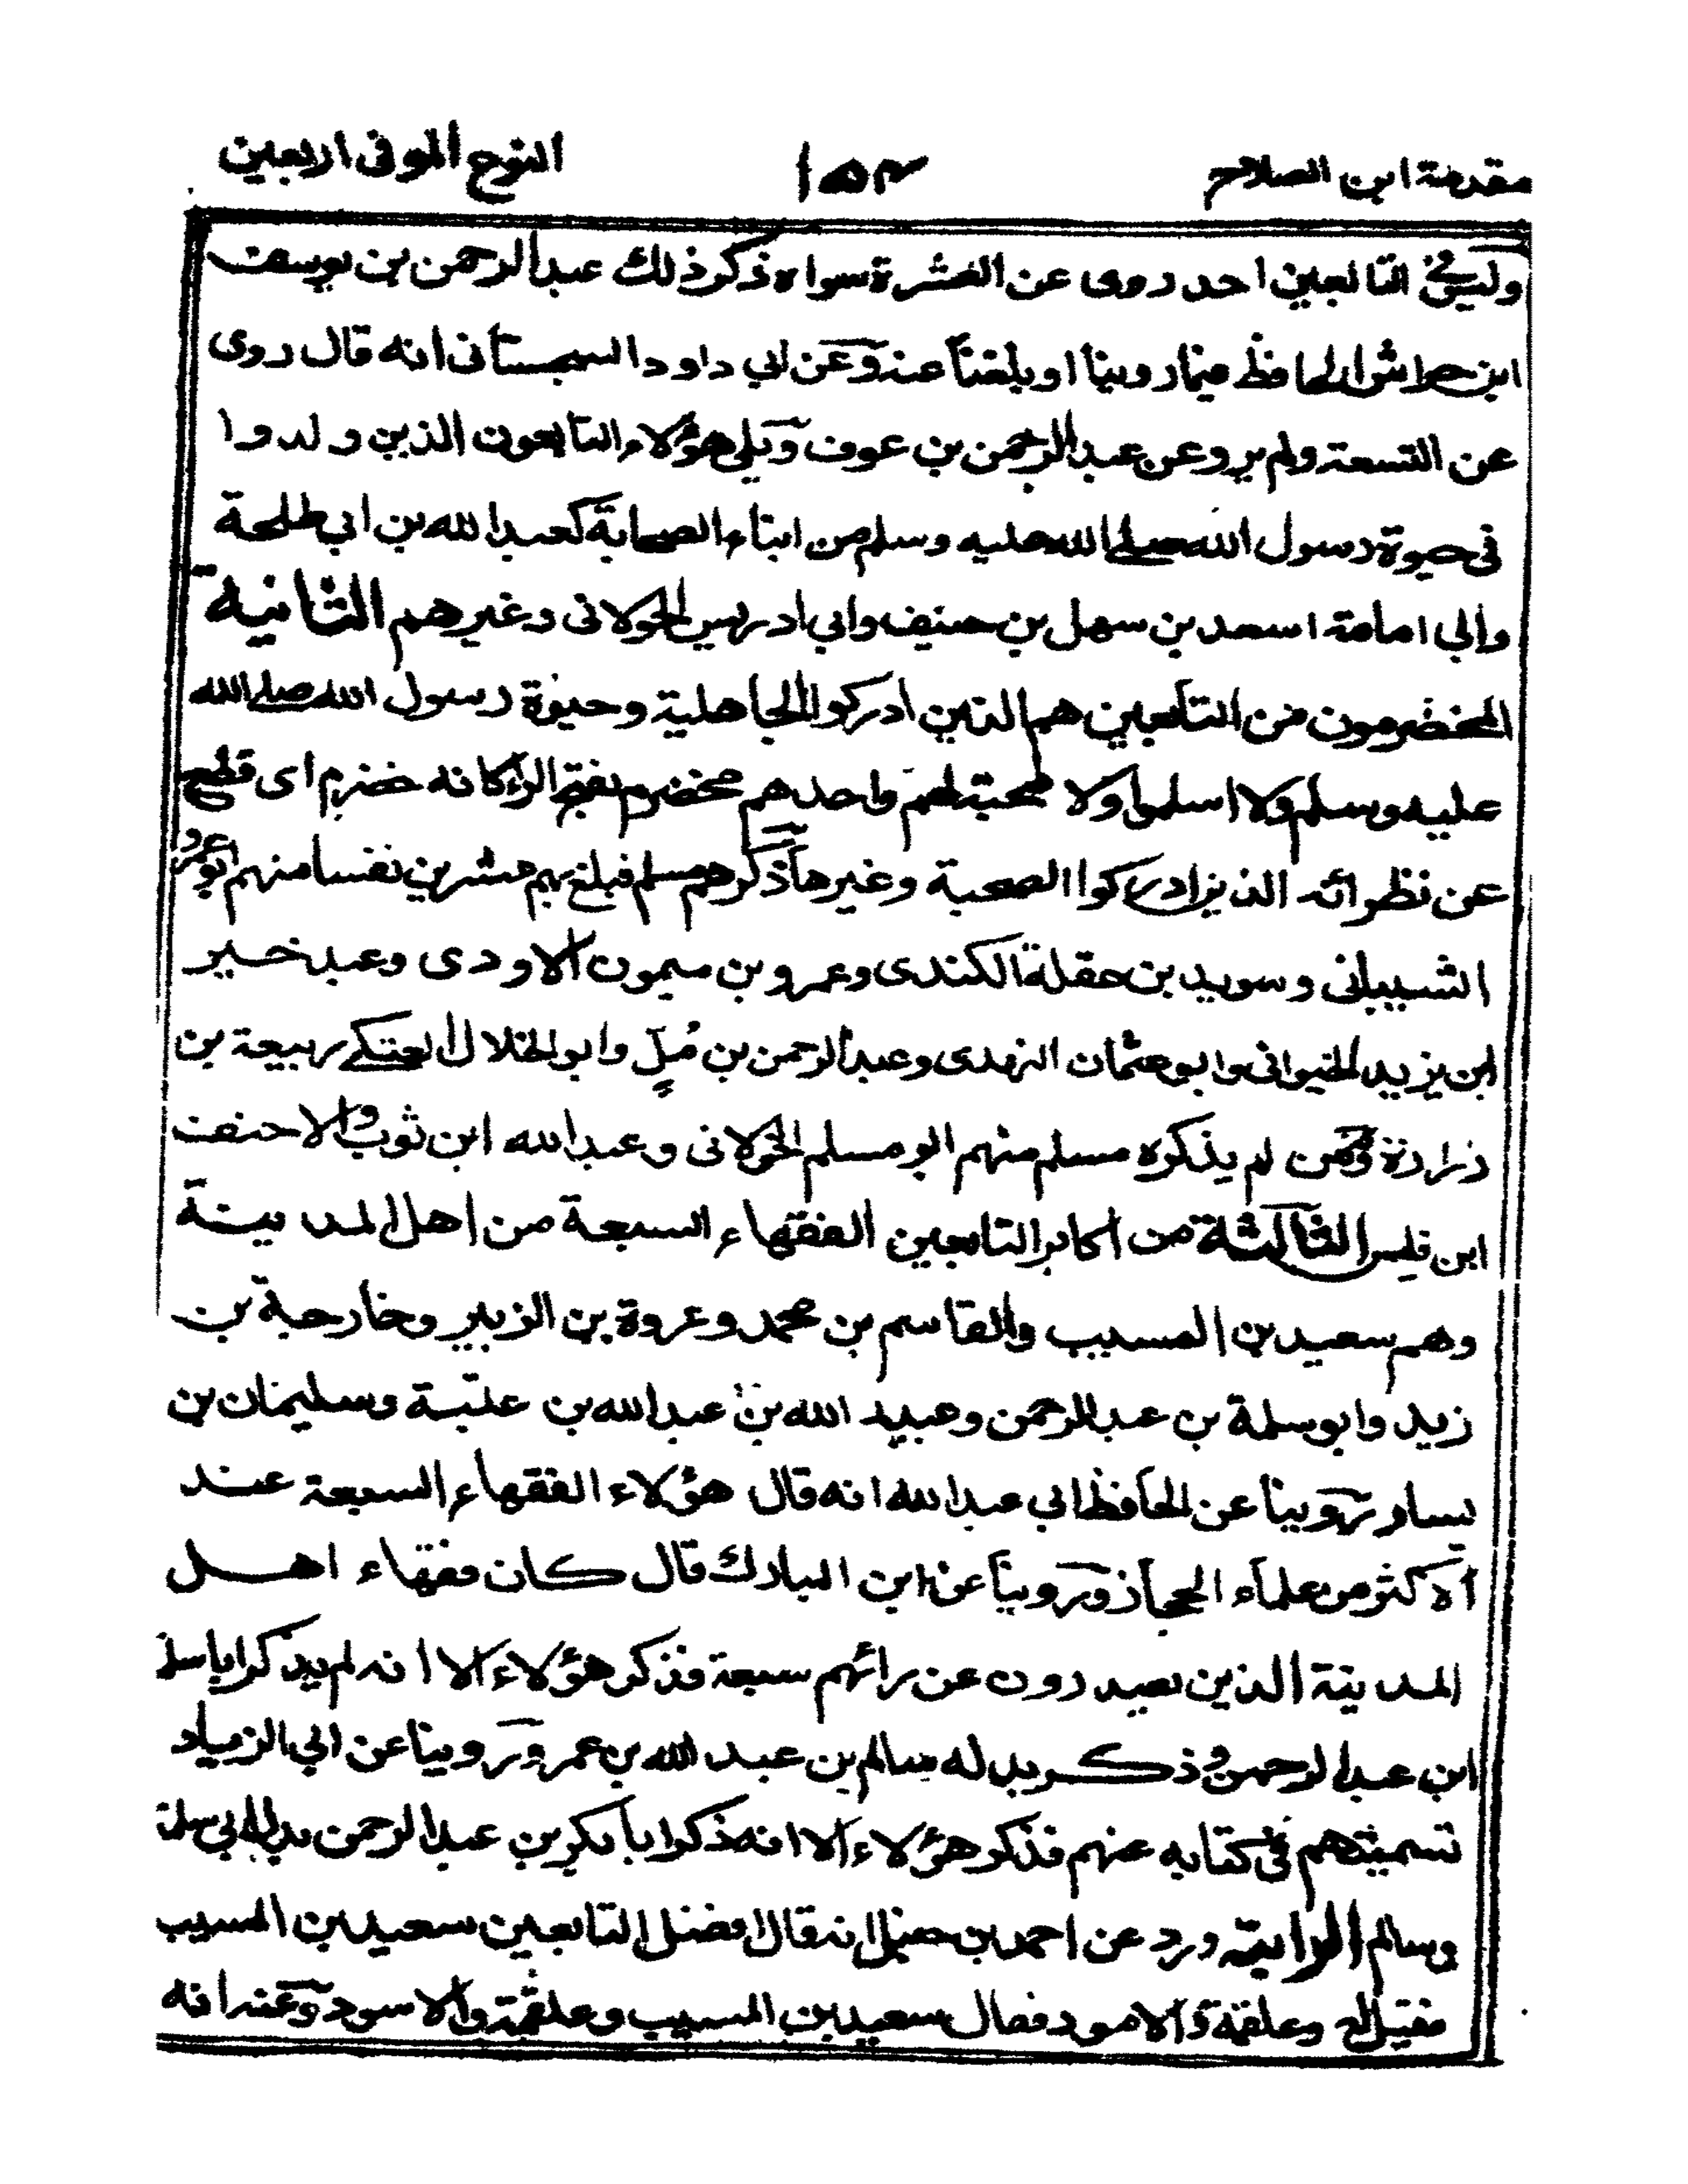 مقدمة ابن الصلاح
١٥٣
النوع الموفى اربعين
وليس فى التابعين احد روى عن العشرة سواه ذكر ذلك عبد الرحمن بن يوسف
ابن خراش الحافظ فيما روينا او بلغنا عنه وعن ابي داود السجستانى انه قال روى
عن التسعة ولم يرو عن عبد الرحمن بن عوف ويلي هؤلاء التابعون الذين ولدوا
فى حيوة رسول الله صلى الله عليه وسلم من ابناء الصحابة كعبد الله بن ابي طلحة
وابي امامة اسعد بن سهل بن حنيف وابي ادريس الخولانى وغيرهم الثانية
المخضرمون من التابعين هم الذين ادركوا الجاهلية وحيوة رسول الله صلى الله
عليه وسلم ولا اسلموا ولا صحبة لهم واحدهم مخضرم بفتح الراء كانه خضرم اى قطع
عن نظرائه الذين ادركوا الصحبة وغيرها ذكرهم مسلم فبلغ بهم عشرين نفسا منهم ابو عمرو
الشيبانى وسويد بن حقلة الكندى وعمرو بن ميمون الاودى وعبد خير
ابن يزيد الخيوانى وابو عثمان النهدى وعبد الرحمن بن مُلٍّ وابو الخلال العتكى ربيعة بن
زرارة وممن لم يذكره مسلم منهم ابو مسلم الخولانى وعبد الله ابن ثوب والاحنف
ابن قيس الثالثة من اكابر التابعين الفقهاء السبعة من اهل المدينة
وهم سعيد بن المسيب والقاسم بن محمد وعروة بن الزبير وخارجة بن
زيد وابو سلمة بن عبد الرحمن وعبيد الله بن عبد الله بن عتبة وسليمان بن
يسار روينا عن الحافظ ابي عبد الله انه قال هؤلاء الفقهاء السبعة عند
الاكثر من علماء الحجاز وروينا عن ابن المبارك قال كان فقهاء اهل
المدينة الذين يصدرون عن رائهم سبعة فذكر هؤلاء الا انه لم يذكر ابا سلمة
ابن عبد الرحمن وذكر بدله سالم بن عبد الله بن عمر وروينا عن ابي الزناد
تسميتهم فى كتابه عنهم فذكر هؤلاء الا انه ذكر ابا بكر بن عبد الرحمن بدل ابي سلمة
وسالم الرابعة ورد عن احمد بن حنبل انه قال افضل التابعين سعيد بن المسيب
فقيل له وعلقمة والاسود فقال سعيد بن المسيب وعلقمة والاسود وعنه انه